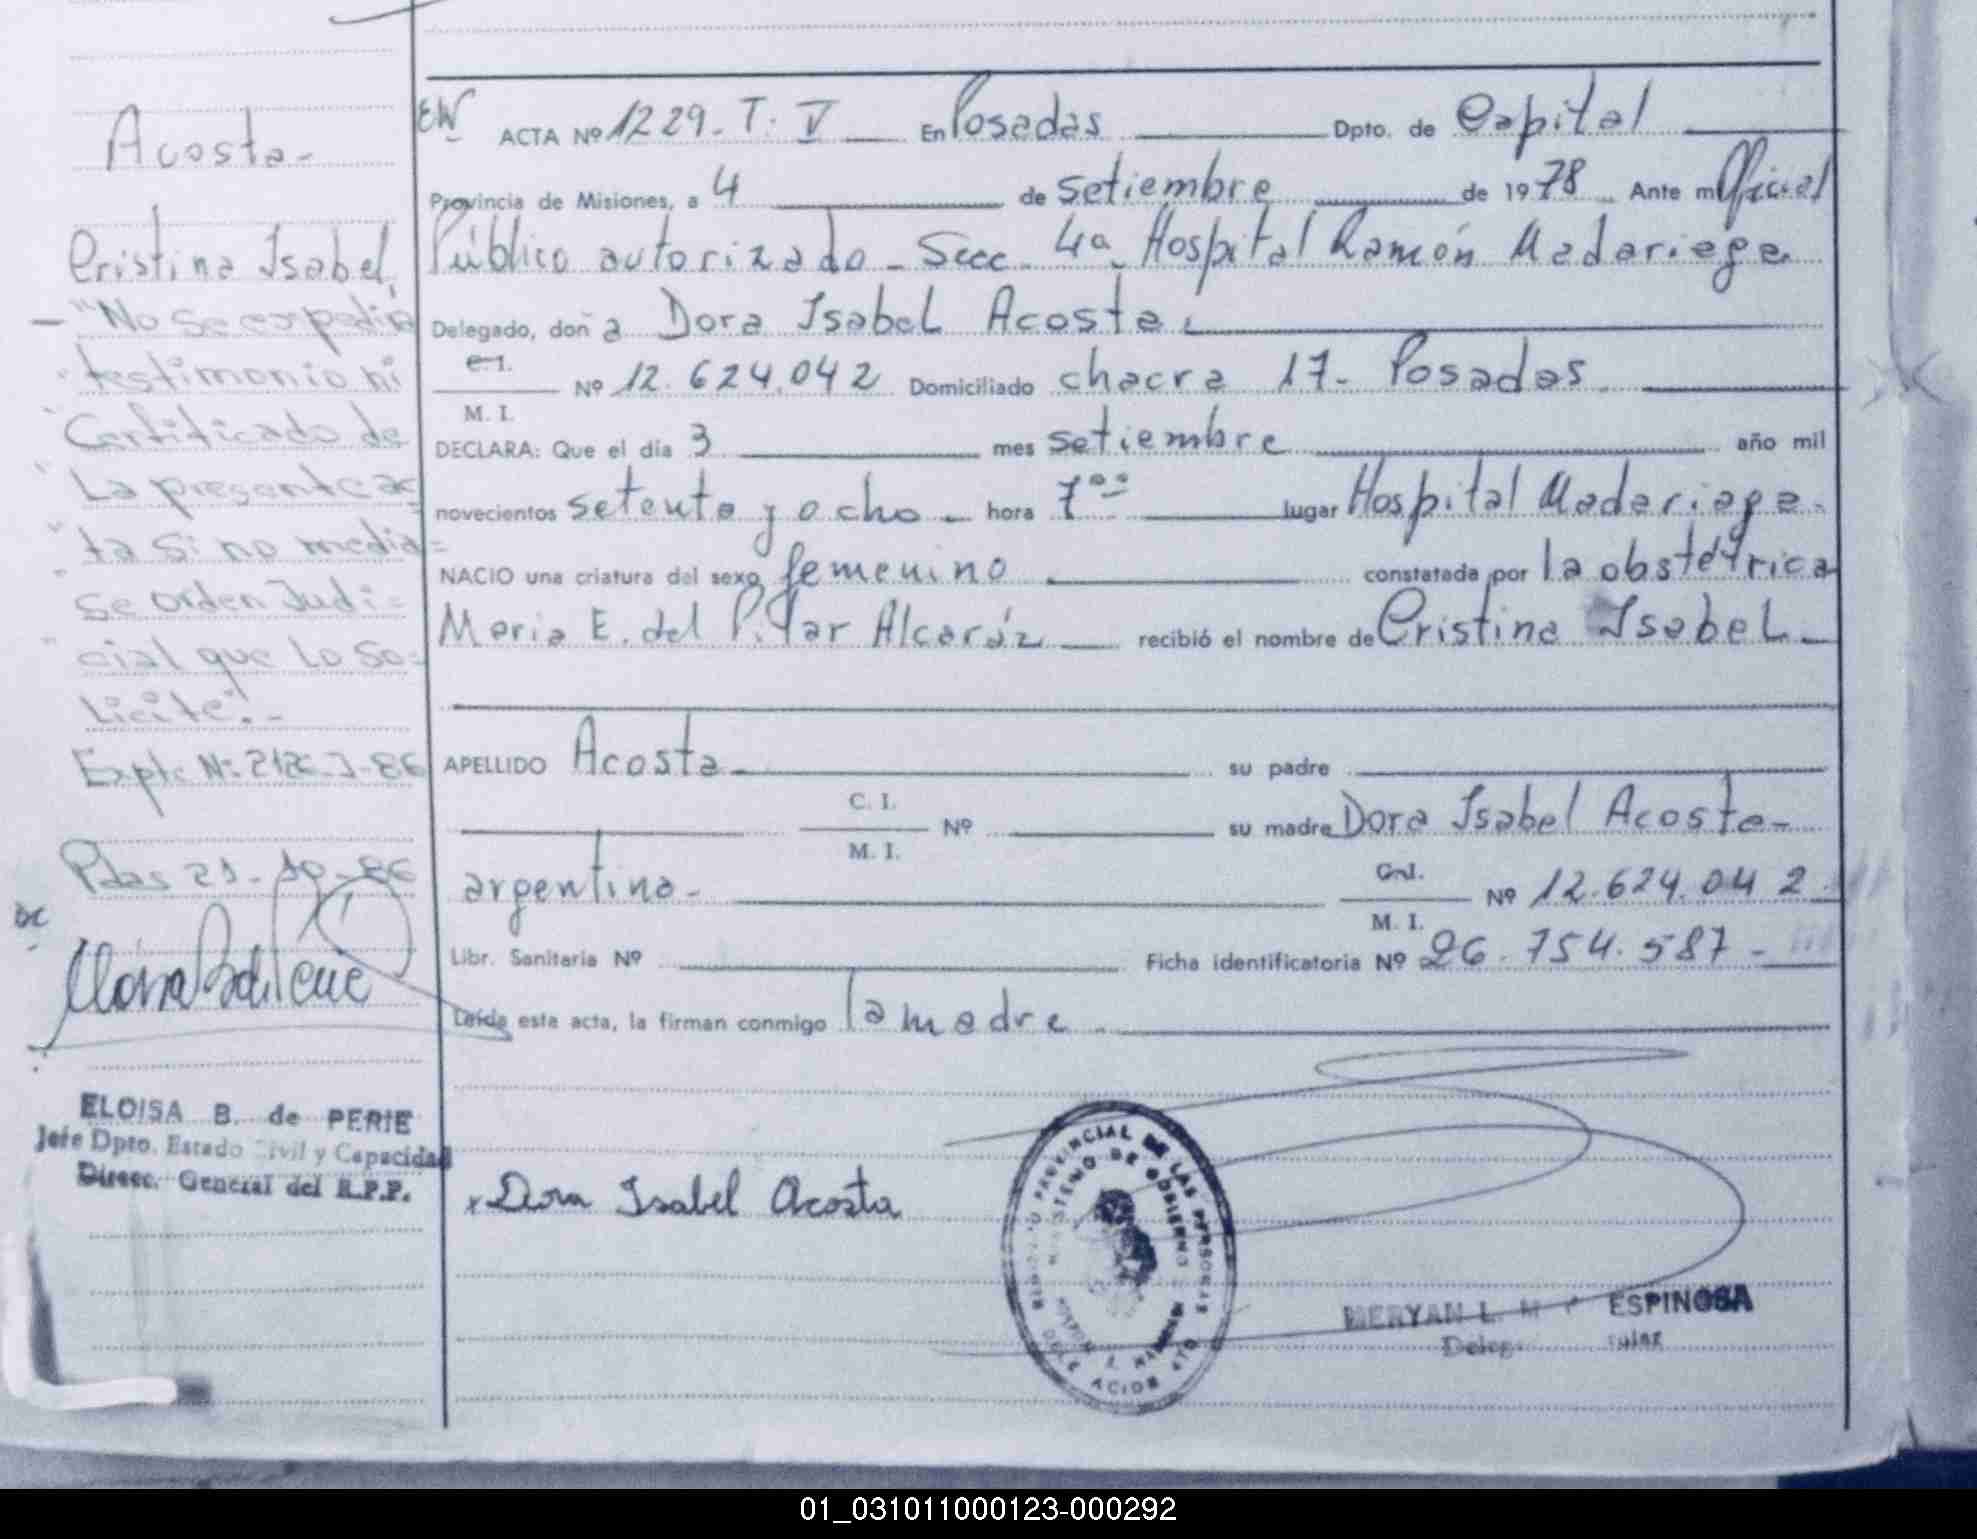 Acosta-
Cristina Isabel,
- "No se expedirá
" testimonio ni
" Certificado de
" La presente ac
" ta si no media=
" se orden Judi=
" cial que lo so=
licite".-
Pdas 21-10-86
ELOISA B. de PERIE
Jefe Dpto. Estado Civil y Capacidad
Direcc. General del R.P.P.
ACTA Nº 1229-T. V En Posadas Dpto. de Capital
Provincia de Misiones, a 4 de setiembre de 1978 Ante mí Oficial
Público autorizado - Secc. 4a. Hospital Ramón Madariaga
Delegado, doña Dora Isabel Acosta.
C. I.
Nº 12.624.042 Domiciliado chacra 17- Posadas.
M. I.
DECLARA: Que el día 3 mes setiembre año mil
novecientos setenta y ocho - hora 7°° lugar Hospital Madariaga-
NACIO una criatura del sexo femenino constatada por la obstétrica
Maria E. del Pilar Alcaráz recibió el nombre de Cristina Isabel-
APELLIDO Acosta- su padre
C. I.
Nº su madre Dora Isabel Acosta-
M. I.
argentina- C. I. Nº 12.624.042
M. I.
Libr. Sanitaria Nº Ficha identificatoria Nº 26.754.587-
Leída esta acta, la firman conmigo la madre
x Dora Isabel Acosta
PROVINCIAL DE LAS PERSONAS
MINISTERIO DE GOBIERNO
MERYAN L. ESPINOSA
01_031011000123-000292